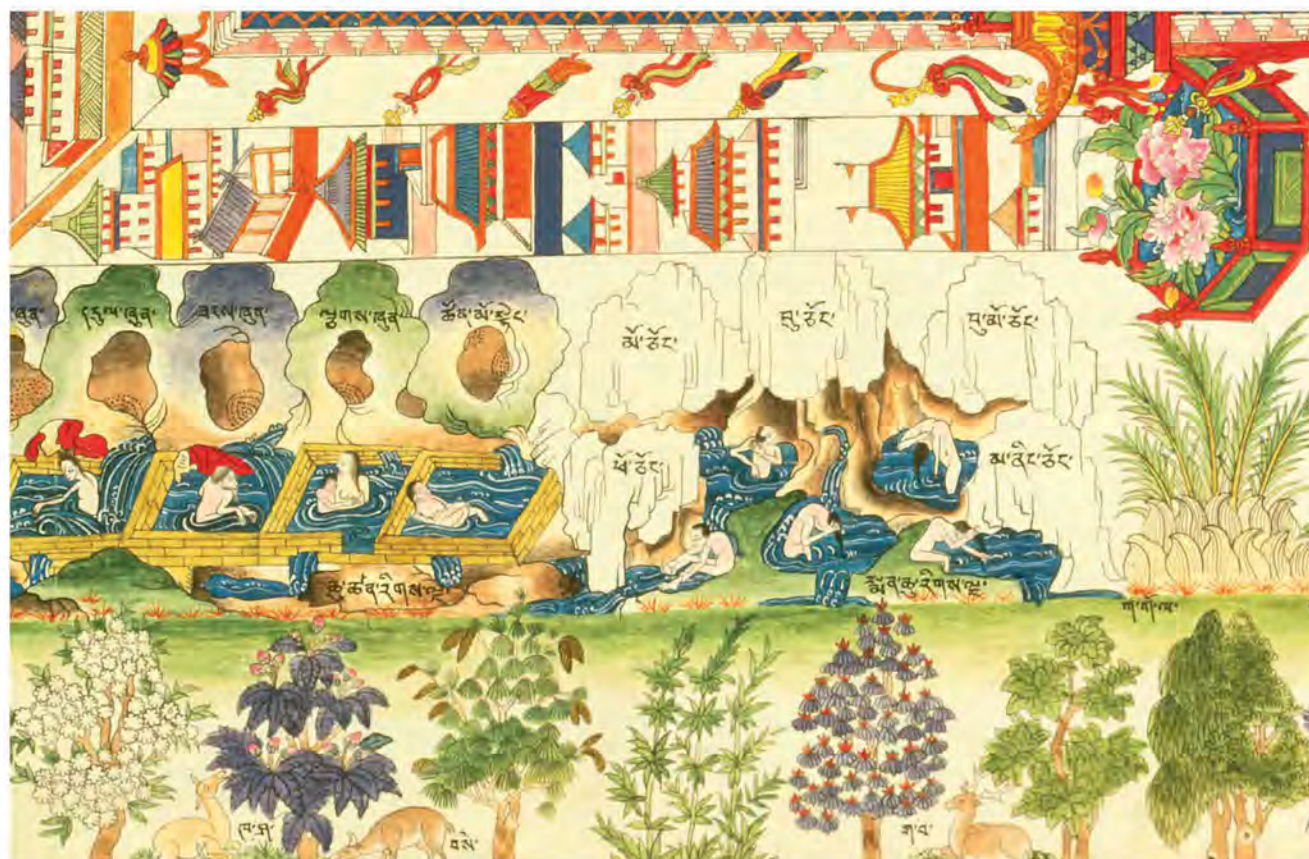 ཞུན་
དངུལ་ཞུན་
ཟངས་ཞུན་
ལྕགས་ཞུན་
ཚོན་མོ་སྟེང་
མོ་ཅོང་
བུ་ཅོང་
བུ་མོ་ཅོང་
ཕོ་ཅོང་
མ་ནིང་ཅོང་
ཆུ་ཚན་རིགས་ལྔ་
སྨན་ཆུ་རིགས་ལྔ་
ཁ་ཤ་
བསེ་